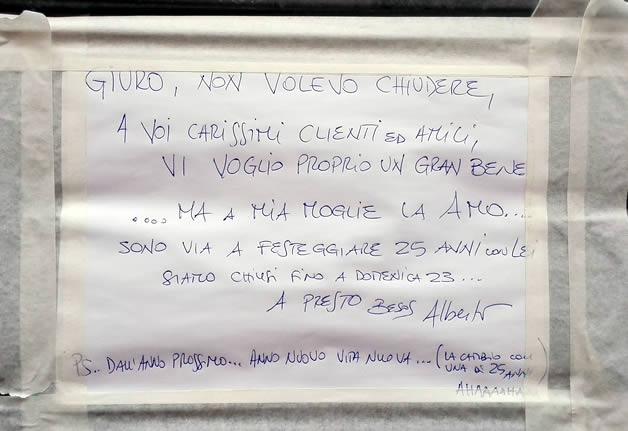 GIURO, NON VOLEVO CHIUDERE,
A VOI CARISSIMI CLIENTI ED AMICI,
VI VOGLIO PROPRIO UN GRAN BENE
.... MA A MIA MOGLIE LA AMO....
SONO VIA A FESTEGGIARE 25 ANNI CON LEI
SIAMO CHIUSI FINO A DOMENICA 23...
A PRESTO BESOS Alberto
PS.. DALL'ANNO PROSSIMO... ANNO NUOVO VITA NUOVA... (LA CAMBIO CON
UNA DI 25 ANNI)
AHAAAAHA